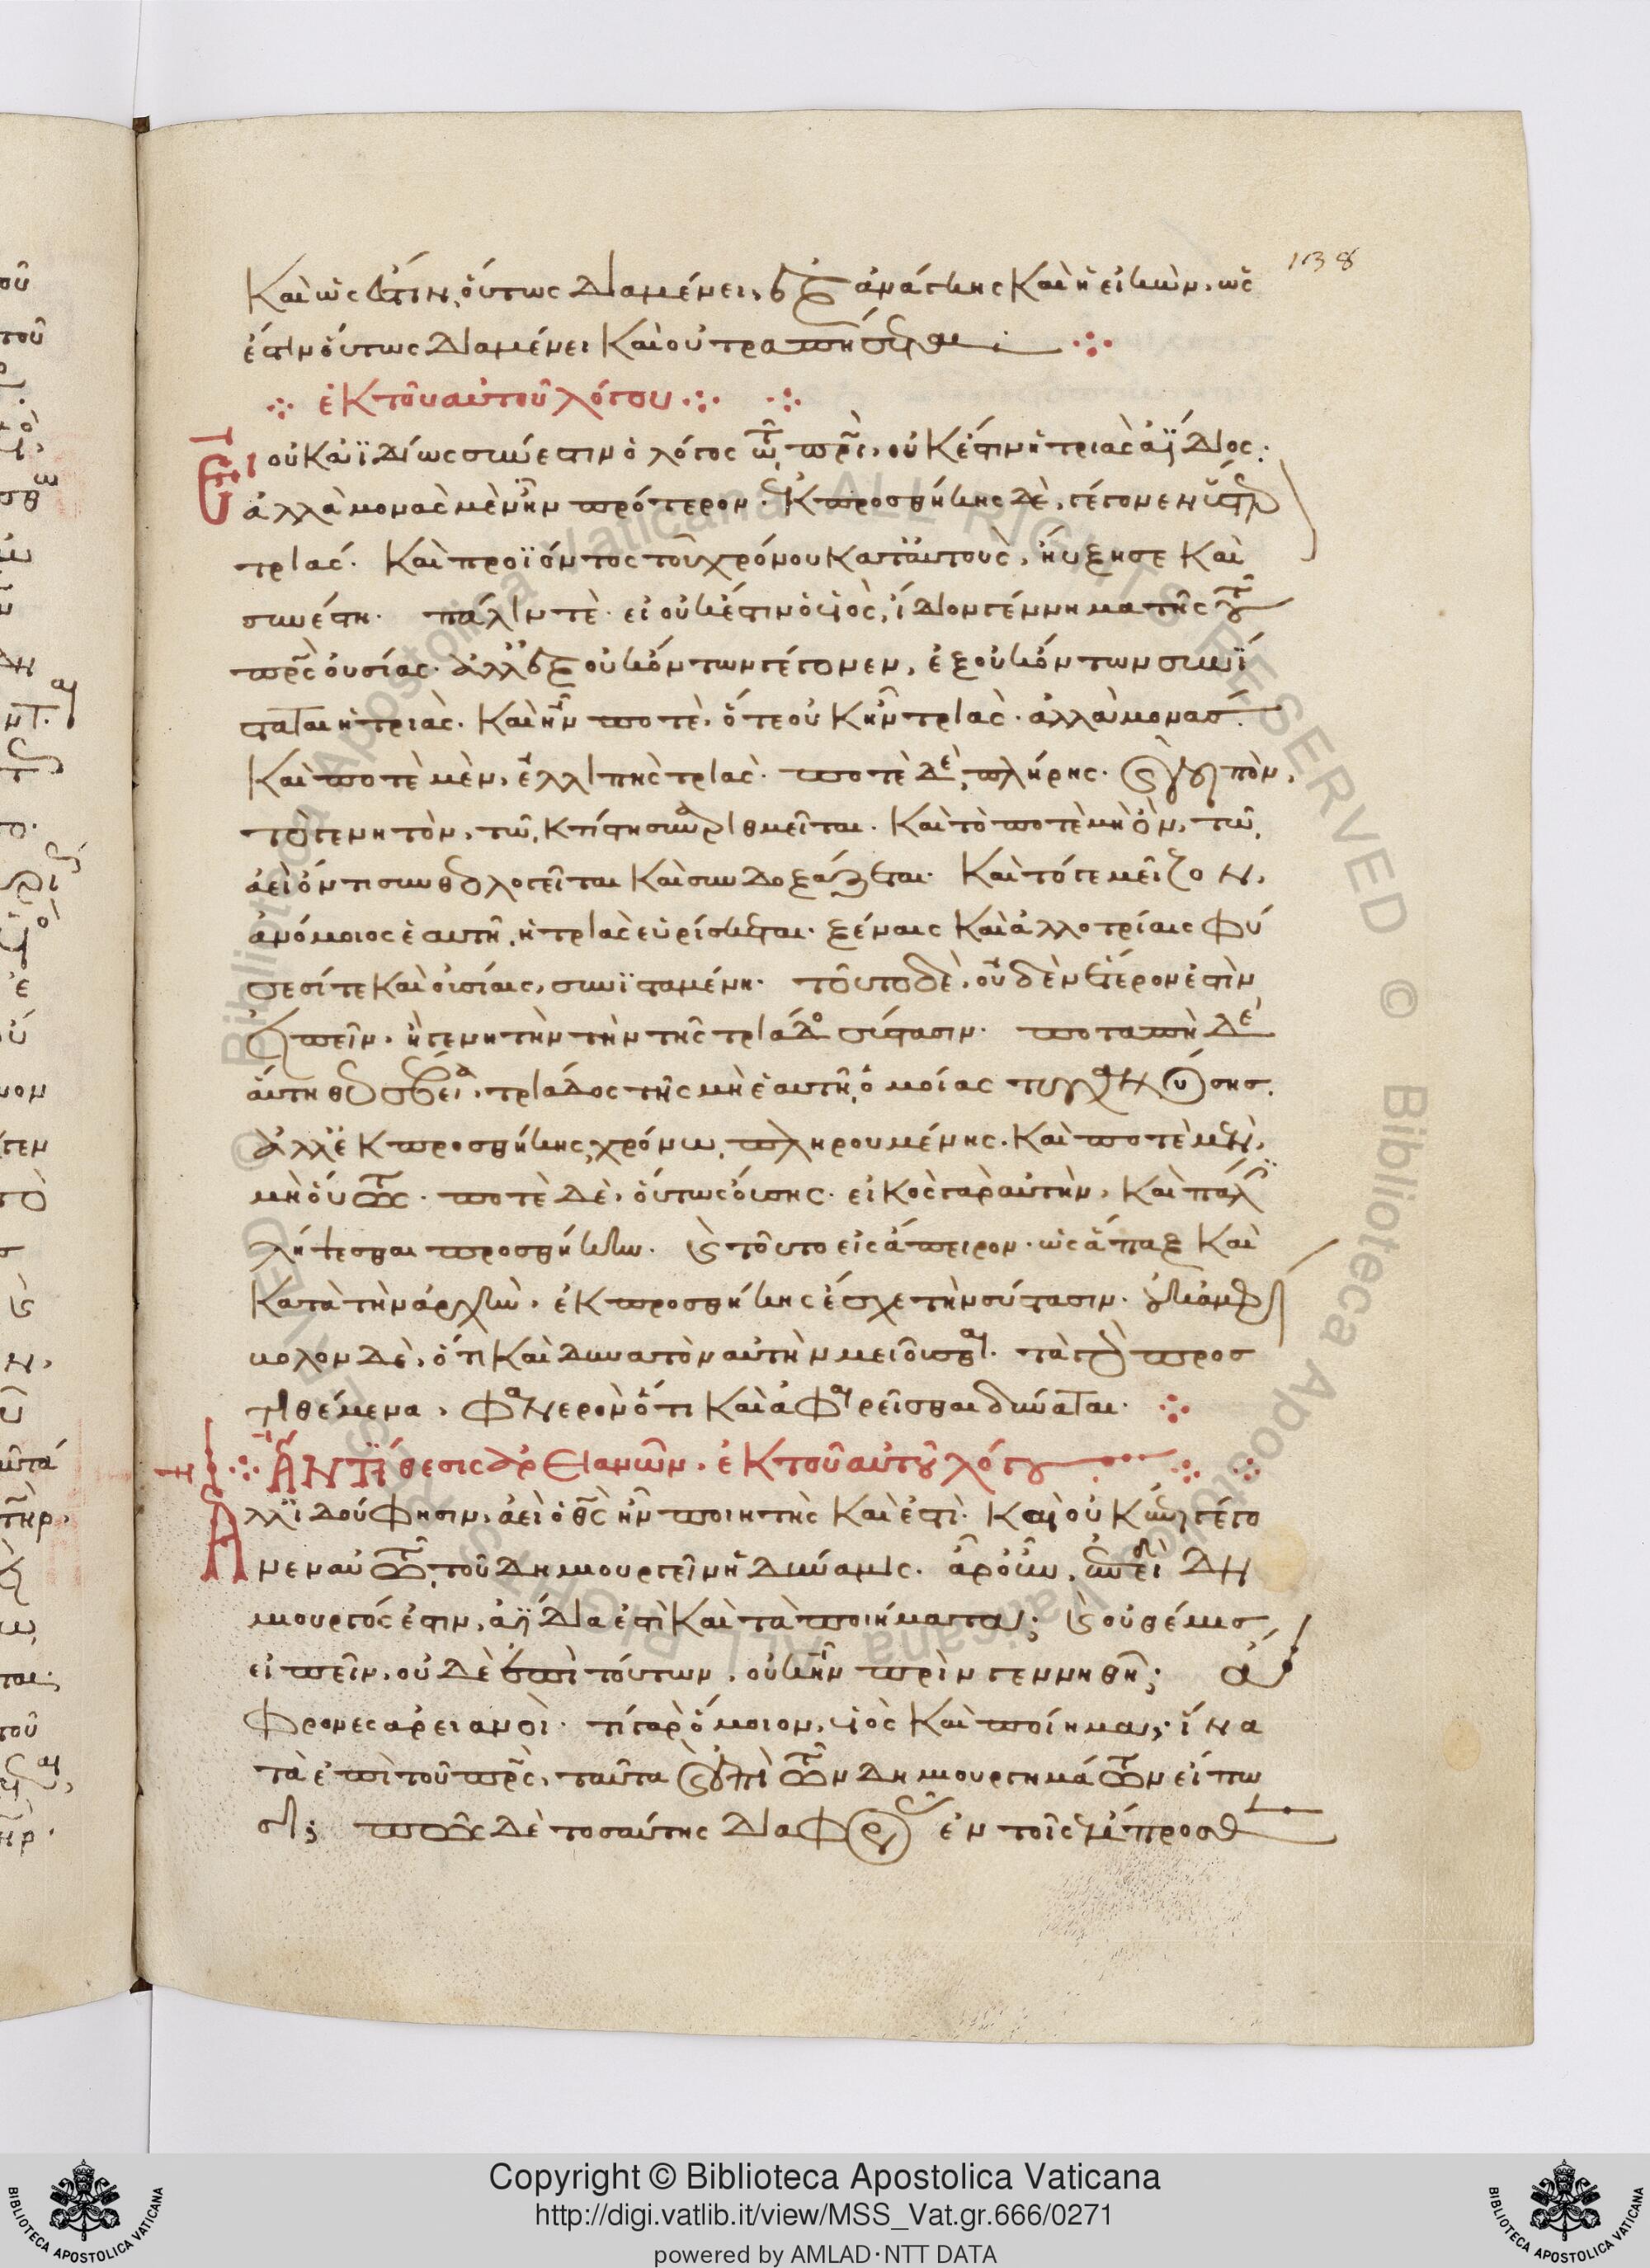 138
Καὶ ὡς ἔστιν, οὕτως διαμένει, ἐξ ἀνάγκης Καὶ ἡ εἰκὼν, ὡς
ἔστιν οὕτως διαμένει Καὶ οὐ τραπήσεται
ἐκ τοῦ αὐτοῦ λόγου
Εἰ οὐκ ἀϊδίως σύνεστιν ὁ λόγος τῷ πρὶ, οὐκ ἔστιν ἡ τριὰς ἀΐδιος·
ἀλλὰ μονὰς μὲν ἦν πρότερον· ἐκ προσθήκης δὲ, γέγονεν ὕστερον
τριάς. Καὶ προϊόντος τοῦ χρόνου κατ' αὐτοὺς, ηὔξησε Καὶ
συνέστη. πάλιν τὲ εἰ οὐκ ἔστιν ὁ υἱὸς, ἴδιον γέννημα τῆς τοῦ
πρς οὐσίας· ἀλλ' ἐξ οὐκ ὄντων γέγονεν, ἐξ οὐκ όντων συνΐ
σταται ἡ τριὰς. Καὶ ἦν ποτὲ, ὅτε οὐκ ἦν τριὰς. ἀλλὰ μονάς.
Καὶ ποτὲ μὲν, ἐλλιπὴς τριὰς. ποτὲ δὲ, πλήρης.
τὸ γενητὸν, τῷ κτίστῃ συναριθμεῖται. Καὶ τὸ ποτὲ μὴ ὂν, τῷ
ἀεὶ όντι συνθεολογεῖται Καὶ συνδοξάζεται. Καὶ τό γε μεῖζον,
ἀνόμοιος ἑαυτῇ, ἡ τριὰς εὑρίσκεται. ξέναις Καὶ ἀλλοτρίαις φύ
σεσί τε Καὶ οὐσίαις, συνϊσταμένη. τοῦτο δὲ, οὐδὲν ἕτερον ἐστὶν
εἰπεῖν, ἢ γενητὴν τὴν τῆς τριάδος σύστασιν. ποταπὴ δὲ
αὕτη θεοσέβεια, τριάδος τῆς μὴ ἑαυτῇ ὁμοίας τυγχανούσης.
ἀλλ' ἐκ προσθήκης χρόνω, πληρουμένης. Καὶ ποτὲ μὲν,
μὴ οὕτως. ποτὲ δὲ, οὕτως οὔσης. εἰκὸς γὰρ αὐτὴν, Καὶ πάλιν
λήψεσθαι προσθήκην. καὶ τοῦτο εἰς ἄπειρον. ὡς ἅπαξ Καὶ
Κατὰ τὴν ἀρχὴν, ἐκ προσθήκης ἔσχε τὴν σύστασιν. οὐκ ἀμφί
βολον δὲ, ὅτι Καὶ δυνατὸν αὐτὴν μειοῦσθαι. τὰ γὰρ προς
τιθέμενα, φανερὸν ὅτι Καὶ ἀφαιρεῖσθαι δύναται.
ἈΝΤΊθεσις ἀρειανῶν. ἐκ τοῦ αὐτοῦ λόγου
Ἀλλ' ἰδού φησιν, ἀεὶ ὁ θς ἦν ποιητὴς Καὶ ἐστὶ. Καὶ οὐκ ἐπιγέγο
νεν αὐτῷ, τοῦ δημιουργεῖν ἡ δύναμις. ἆρ' οὖν, ἐπεὶ δη
μιουργός ἐστιν, ἀΐδια ἐστὶ Καὶ τὰ ποιήματα; καὶ οὐ θέμις
εἰπεῖν, οὐδὲ ἐπὶ τούτων, οὐκ ἦν πρὶν γεννηθῇ; ἄ
φρονες ἀρειανοὶ. τί γὰρ ὅμοιον, υἱὸς Καὶ ποίημα; ἵνα
τὰ ἐπὶ τοῦ πρς, ταῦτα καὶ ἐπὶ τῶν δημιουργημάτων εἴπω
σι; πῶς δὲ τοσαύτης διαφορᾶς ἐν τοῖς ἔμπροσθεν
Copyright © Biblioteca Apostolica Vaticana
http://digi.vatlib.it/view/MSS_Vat.gr.666/0271
powered by AMLAD·NTT DATA
BIBLIOTECA APOSTOLICA VATICANA
BIBLIOTECA APOSTOLICA VATICANA